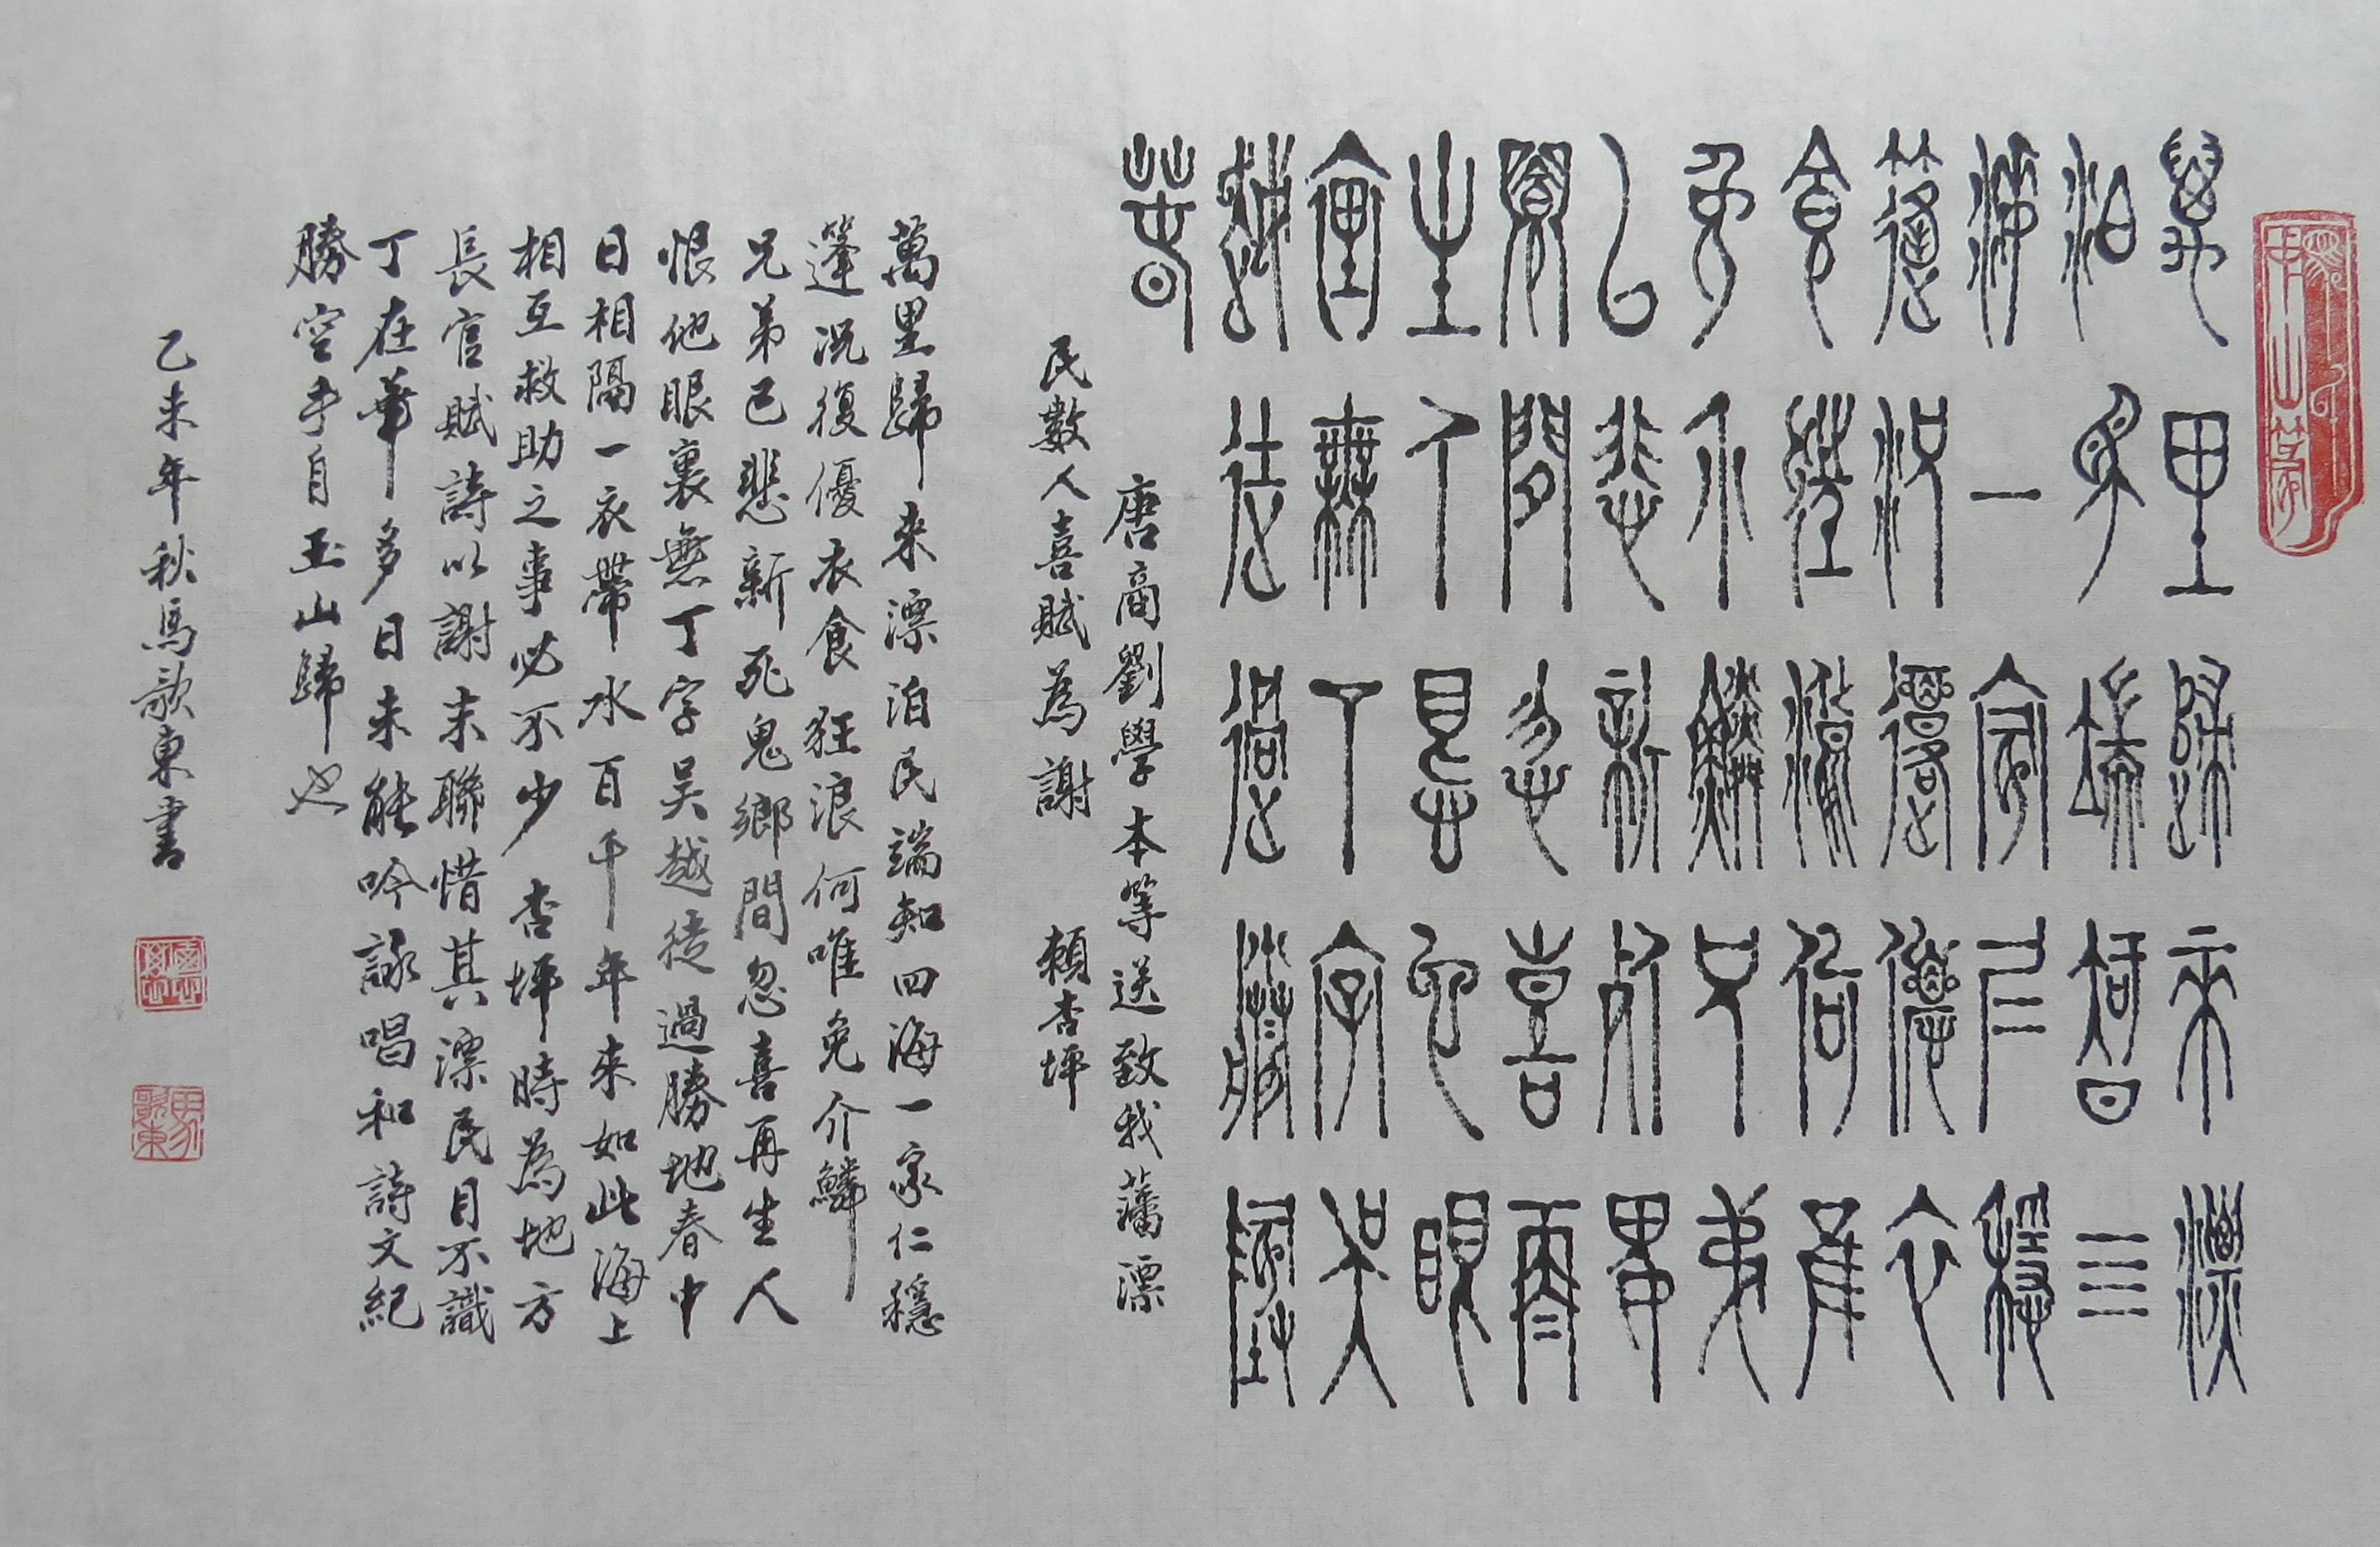 萬里歸來漂
泊民端知四
海一家仁穩
篷況復優衣
食狂浪何唯
免介鱗兄弟
已悲新死鬼
鄉間忽喜再
生人恨他眼
裏無丁字吳
越徒過勝地
春
唐商劉學本等送致我藩漂
民數人喜賦為謝 賴杏坪
萬里歸来漂泊民端知四海一家仁穩
篷況復優衣食狂浪何唯免介鱗
兄弟已悲新死鬼鄉間忽喜再生人
恨他眼裏無丁字吳越徒過勝地春中
日相隔一衣帶水百千年来如此海上
相互救助之事必不少 杏坪時為地方
長官賦詩以謝末聯惜其漂民目不識
丁在華多日未能吟詠唱和詩文紀
勝空手自玉山歸也
乙未年秋馬歌東書
馬歌東